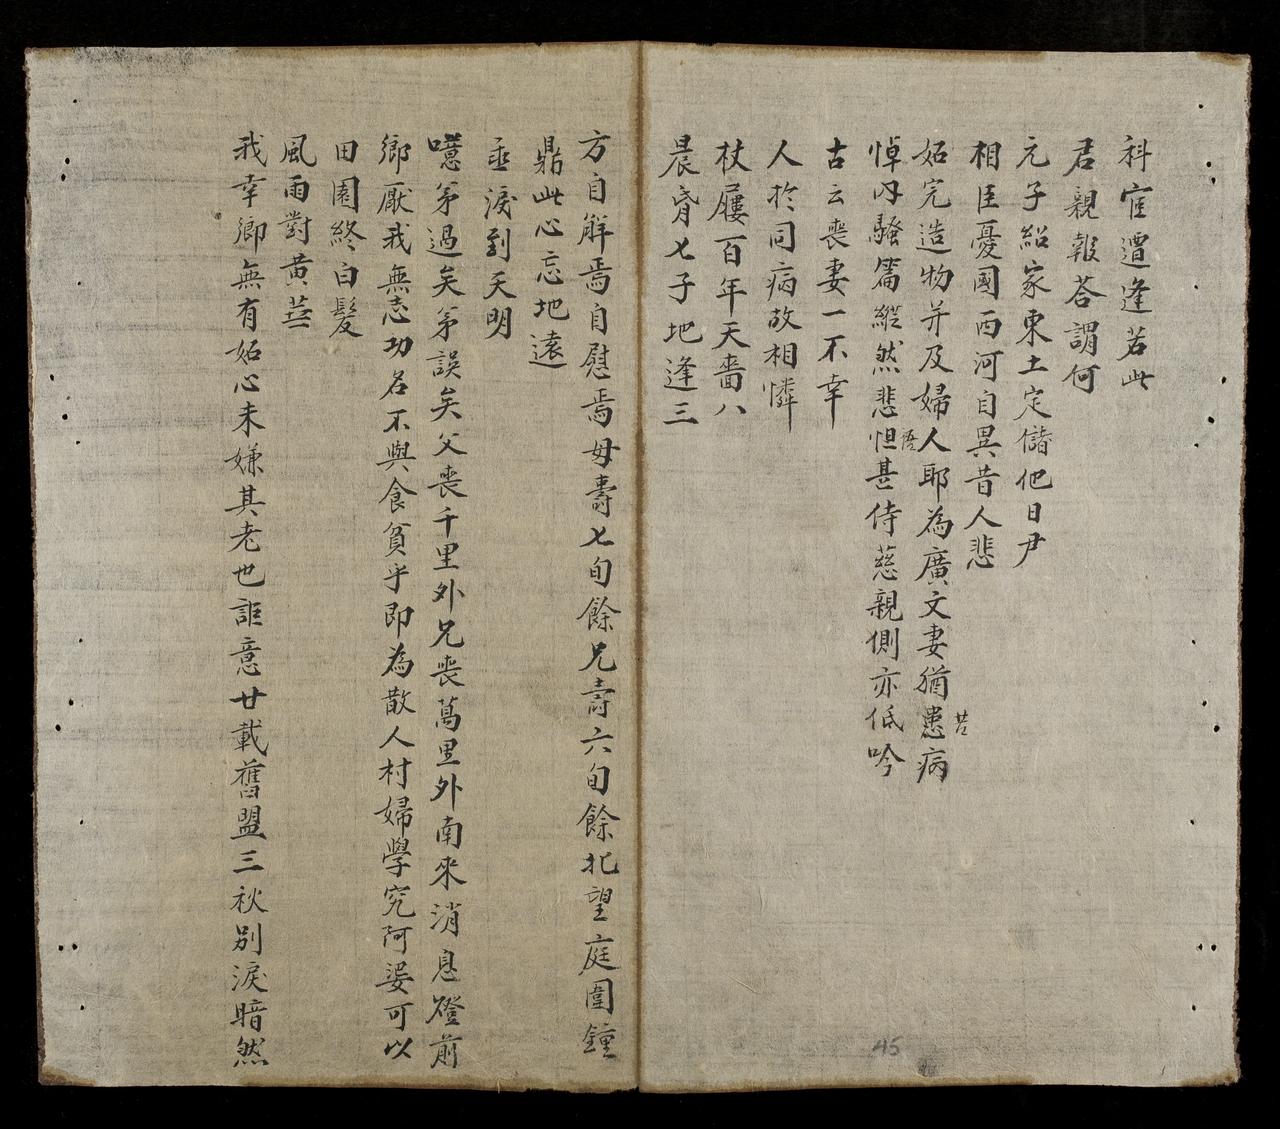 科宦遭逢若此
君親報荅謂何
元子紹家東土定儲他日尹
相臣憂國西河自異昔人悲
妬完造物并及婦人耶為廣文妻猶患病
苦
悼內騷篇縱然悲怛甚侍慈親側亦低吟
語
古云喪妻一不幸
人於同病故相憐
杖屨百年天嗇八
晨昏七子地逢三
方自解焉自慰焉母壽七旬餘兄壽六旬餘北望庭圍鍾
鼎此心忘地遠
垂淚到天明
噫第過矣第誤矣父喪千里外兄喪萬里外南來消息燈前
鄉厭我無志功名不與食貧乎即為散人村婦學究阿婆可以
田園終白髮
風雨對黃
我幸卿無有妬心未嫌其老也詎意廿載舊盟三秋別淚暗然
45